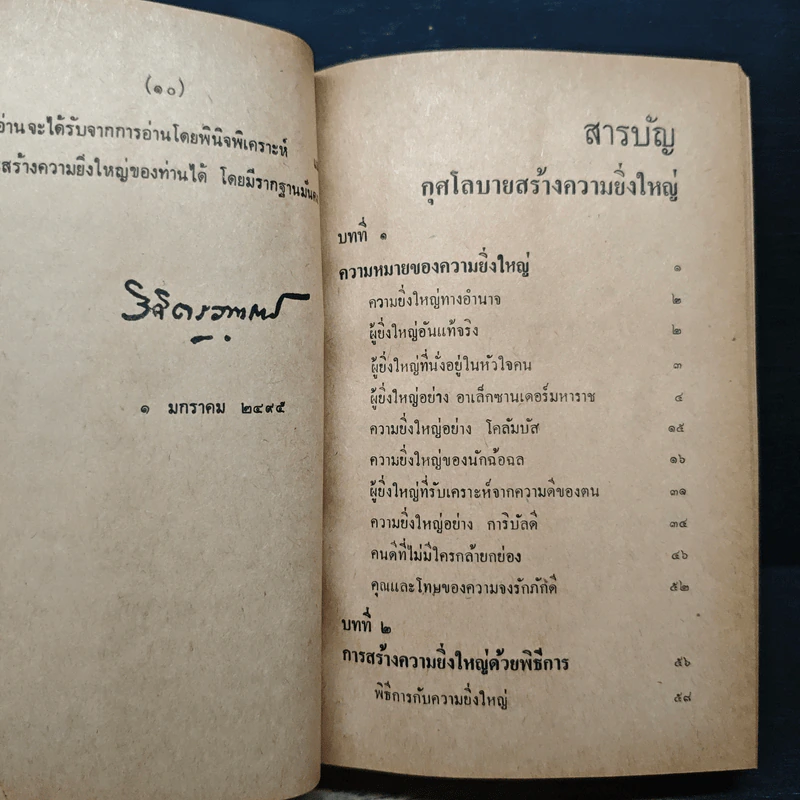 (๑๐)
อ่านจะได้รับจากการอ่านโดยพินิจพิเคราะห์
สร้างความยิ่งใหญ่ของท่านได้ โดยมีรากฐานมั่นคง
วิจิตรวาทการ
๑ มกราคม ๒๔๙๕
สารบัญ
กุศโลบายสร้างความยิ่งใหญ่
บทที่ ๑
ความหมายของความยิ่งใหญ่ ๑
ความยิ่งใหญ่ทางอำนาจ ๒
ผู้ยิ่งใหญ่อันแท้จริง ๒
ผู้ยิ่งใหญ่ที่นั่งอยู่ในหัวใจคน ๓
ผู้ยิ่งใหญ่อย่าง อาเล็กซานเดอร์มหาราช ๔
ความยิ่งใหญ่อย่าง โคลัมบัส ๑๕
ความยิ่งใหญ่ของนักฉ้อฉล ๑๖
ผู้ยิ่งใหญ่ที่รับเคราะห์จากความดีของตน ๓๑
ความยิ่งใหญ่อย่าง การิบัลดี ๓๔
คนดีที่ไม่มีใครกล้ายกย่อง ๔๖
คุณและโทษของความจงรักภักดี ๕๒
บทที่ ๒
การสร้างความยิ่งใหญ่ด้วยพิธีการ ๕๖
พิธีการกับความยิ่งใหญ่ ๕๘